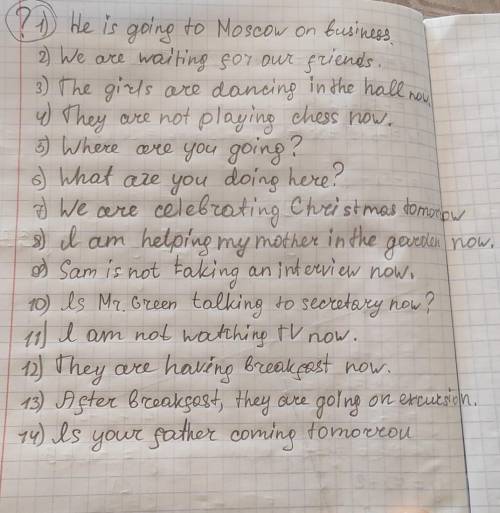 ? 1) He is going to Moscow on business.
2) We are waiting for our friends.
3) The girls are dancing in the hall now.
4) They are not playing chess now.
5) Where are you going?
6) What are you doing here?
7) We are celebrating Christmas tomorrow
8) I am helping my mother in the garden now.
9) Sam is not taking an interview now.
10) Is Mr. Green talking to secretary now?
11) I am not watching TV now.
12) They are having breakfast now.
13) After breakfast, they are going on excursion.
14) Is your father coming tomorrou